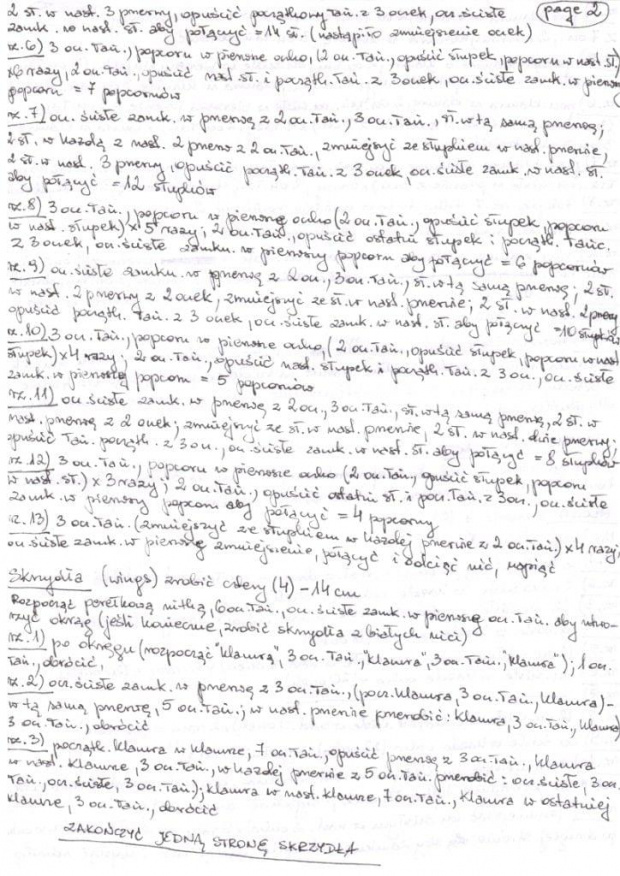 2 st. w nast. 3 przerwy, opuścić początkowy łań. z 3 oczek, ocz. ścisłe
page 2
zamk. w nast. st. aby połączyć = 14 st. (nastąpiło zmniejszenie oczek)
rz. 6) 3 ocz. łań., popcorn w pierwsze oczko, (2 ocz. łań., opuścić słupek, popcorn w nast. st.)
x6 razy, 2 ocz. łań., opuścić nast. st. i początk. łań. z 3 oczek, ocz. ścisłe zamk. w pierwszy
popcorn = 7 popcornów
rz. 7) ocz. ścisłe zamk. w przerwę z 2 ocz. łań., 3 ocz. łań., st. w tą samą przerwę;
2 st. w każdą z nast. 2 przerw z 2 ocz. łań., zmniejszyć ze słupkiem w nast. przerwie,
2 st. w nast. 3 przerwy, opuścić początk. łań. z 3 oczek, ocz. ścisłe zamk. w nast. st.
aby połączyć = 12 słupków
rz. 8) 3 ocz. łań., popcorn w pierwsze oczko (2 ocz. łań., opuścić słupek, popcorn
w nast. słupek) x 5 razy; 2 ocz. łań., opuścić ostatni słupek i początk. łańc.
z 3 oczek, ocz. ścisłe zamkn. w pierwszy popcorn aby połączyć = 6 popcornów
rz. 9) ocz. ścisłe zamkn. w przerwę z 2 ocz., 3 ocz. łań., st. w tą samą przerwę; 2 st.
w nast. 2 przerwy z 2 oczek; zmniejszyć ze st. w nast. przerwie; 2 st. w nast. 2 przerwy
opuścić początk. łań. z 3 oczek, ocz. ścisłe zamk. w nast. st. aby połączyć = 10 słupków
rz. 10) 3 ocz. łań., popcorn w pierwsze oczko, (2 ocz. łań., opuścić słupek, popcorn w nast
słupek) x4 razy; 2 ocz. łań., opuścić nast. słupek i początk. łań. z 3 ocz., ocz. ścisłe
zamk. w pierwszy popcorn = 5 popcornów
rz. 11) ocz. ścisłe zamk. w przerwę z 2 ocz, 3 ocz. łań., st. w tą samą przerwę, 2 st. w
nast. przerwę z 2 oczek; zmniejszyć ze st. w nast. przerwie, 2 st. w nast. dwie przerwy;
opuścić łań. początk. z 3 ocz., ocz. ścisłe zamk. w nast. st. aby połączyć = 8 słupków
rz. 12) 3 ocz. łań., popcorn w pierwsze oczko (2 ocz. łań., opuścić słupek, popcorn
w nast. st.) x 3 razy; 2 ocz. łań., opuścić ostatni st. i pocz. łań. z 3 ocz., ocz. ścisłe
zamk. w pierwszy popcorn aby połączyć = 4 popcorny
rz. 13) 3 ocz. łań. (zmniejszyć ze słupkiem w każdej przerwie z 2 ocz. łań.) x4 razy,
ocz. ścisłe zamk. w pierwsze zmniejszenie, połączyć i odciąć nić, wciągnąć
Skrzydła (wings) zrobić cztery (4) – 14 cm
Rozpocząć perełkową nitką, 6 ocz. łań., ocz. ścisłe zamk. w pierwsze ocz. łań. aby utwo-
rzyć okrąg (jeśli konieczne, zrobić skrzydła z białych nici)
rz. 1) po okręgu (rozpocząć "klamrą", 3 ocz. łań., "klamra", 3 ocz. łań., "klamra"); 1 ocz.
łań., obrócić,
rz. 2) ocz. ścisłe zamk. w przerwę z 3 ocz. łań., (pocz. klamra, 3 ocz. łań., klamra) -
w tą samą przerwę, 5 ocz. łań.; w nast. przerwie przerobić: klamra, 3 ocz. łań., klamra)
3 ocz. łań., obrócić
rz. 3) początk. klamra w klamrze, 7 ocz. łań., opuścić przerwę z 3 ocz. łań., klamra
w nast. klamrze, 3 ocz. łań., w każdej przerwie z 5 ocz. łań. przerobić: ocz. ścisłe, 3 ocz.
łań., ocz. ścisłe, 3 ocz. łań.); klamra w nast. klamrze, 7 ocz. łań., klamra w ostatniej
klamrze, 3 ocz. łań., obrócić
ZAKOŃCZYĆ JEDNĄ STRONĘ SKRZYDŁA